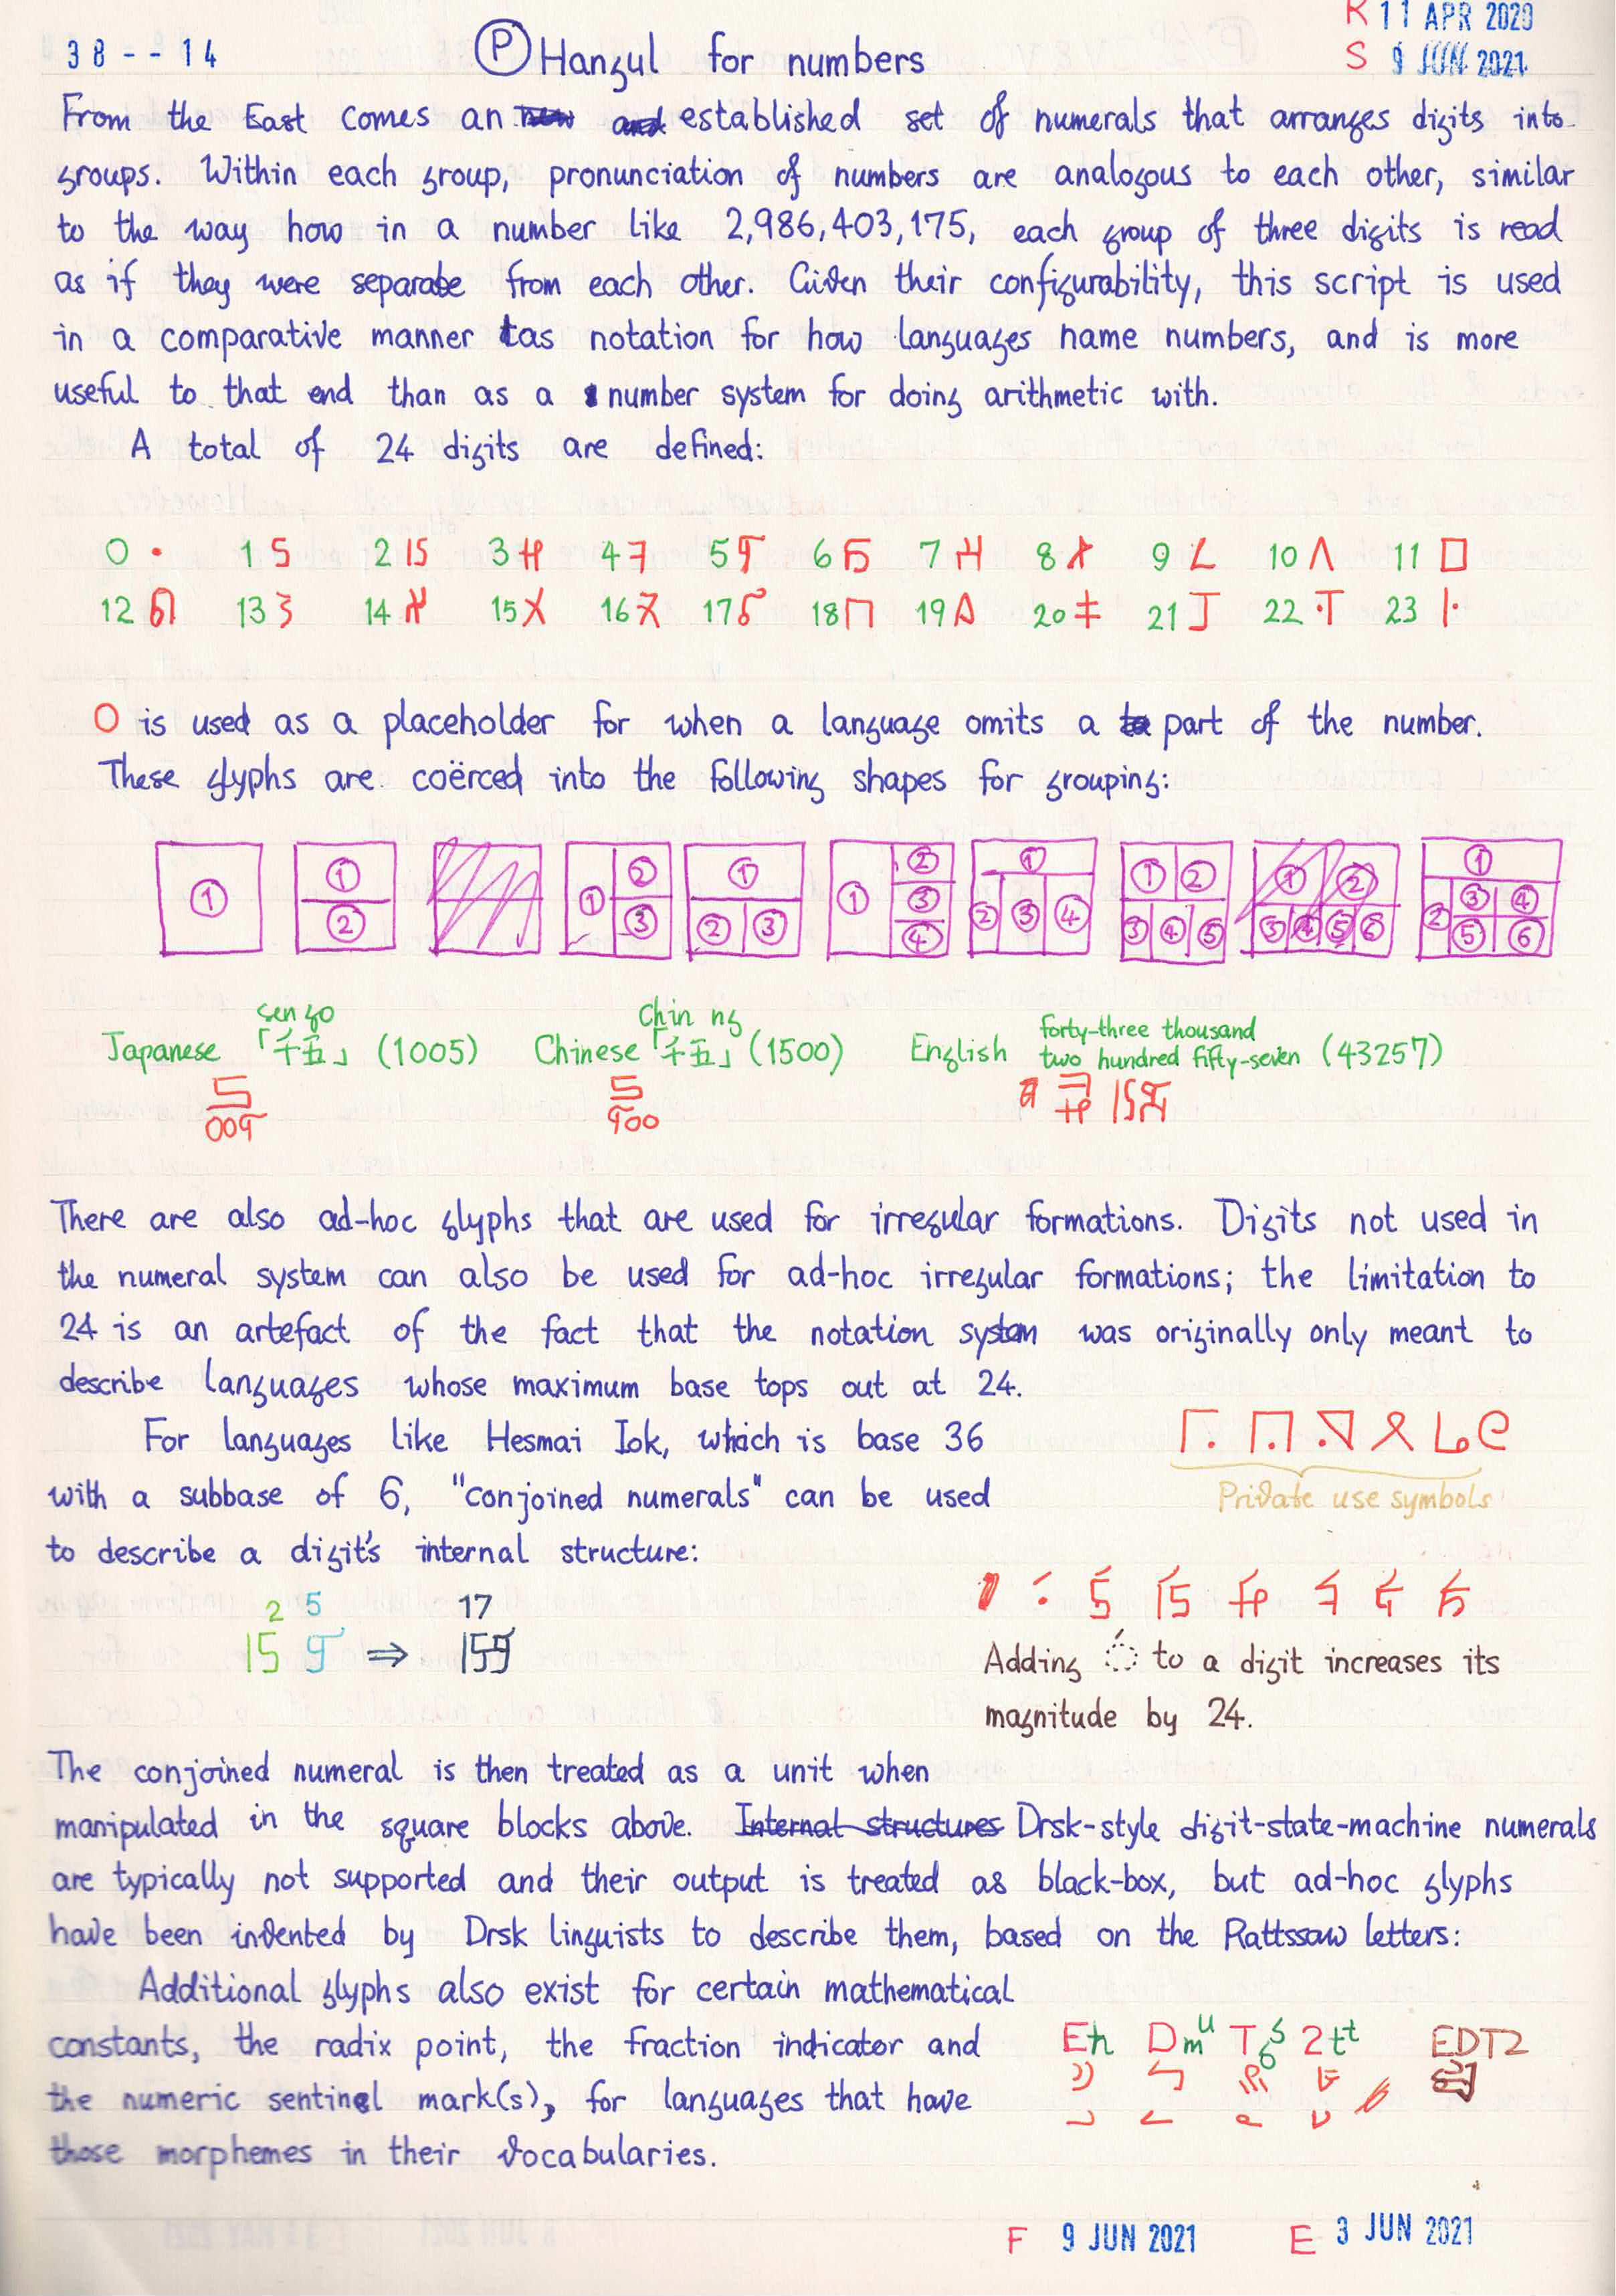 38--14
Ⓟ Hangul for numbers
R 11 APR 2020
S 9 JUN 2021
From the East comes an established set of numerals that arranges digits into
groups. Within each group, pronunciation of numbers are analogous to each other, similar
to the way how in a number like 2,986,403,175, each group of three digits is read
as if they were separate from each other. Given their configurability, this script is used
in a comparative manner as notation for how languages name numbers, and is more
useful to that end than as a number system for doing arithmetic with.
A total of 24 digits are defined:
0 1 2 3 4 5 6 7 8 9 10 11
12 13 14 15 16 17 18 19 20 21 22 23
O is used as a placeholder for when a language omits a part of the number.
These glyphs are coërced into the following shapes for grouping:
① ①② ①②③ ①②③ ①②③④ ①②③④ ①②③④⑤ ①②③④⑤⑥ ①②③④⑤⑥
sen go
Chin ng
forty-three thousand
Japanese 「千五」 (1005) Chinese 「千五」 (1500) English two hundred fifty-seven (43257)
There are also ad-hoc glyphs that are used for irregular formations. Digits not used in
the numeral system can also be used for ad-hoc irregular formations; the limitation to
24 is an artefact of the fact that the notation system was originally only meant to
describe languages whose maximum base tops out at 24.
For languages like Hesmai Iok, which is base 36
with a subbase of 6, "conjoined numerals" can be used
to describe a digit's internal structure:
Private use symbols
2 5 17
⇒
Adding ◌́ to a digit increases its
magnitude by 24.
The conjoined numeral is then treated as a unit when
manipulated in the square blocks above. Internal structures Drsk-style digit-state-machine numerals
are typically not supported and their output is treated as black-box, but ad-hoc glyphs
have been invented by Drsk linguists to describe them, based on the Rattssaw letters:
Additional glyphs also exist for certain mathematical
constants, the radix point, the fraction indicator and
the numeric sentinel mark(s), for languages that have
those morphemes in their vocabularies.
Eh Dmu T6s 2tt EDT2
F 9 JUN 2021 E 3 JUN 2021